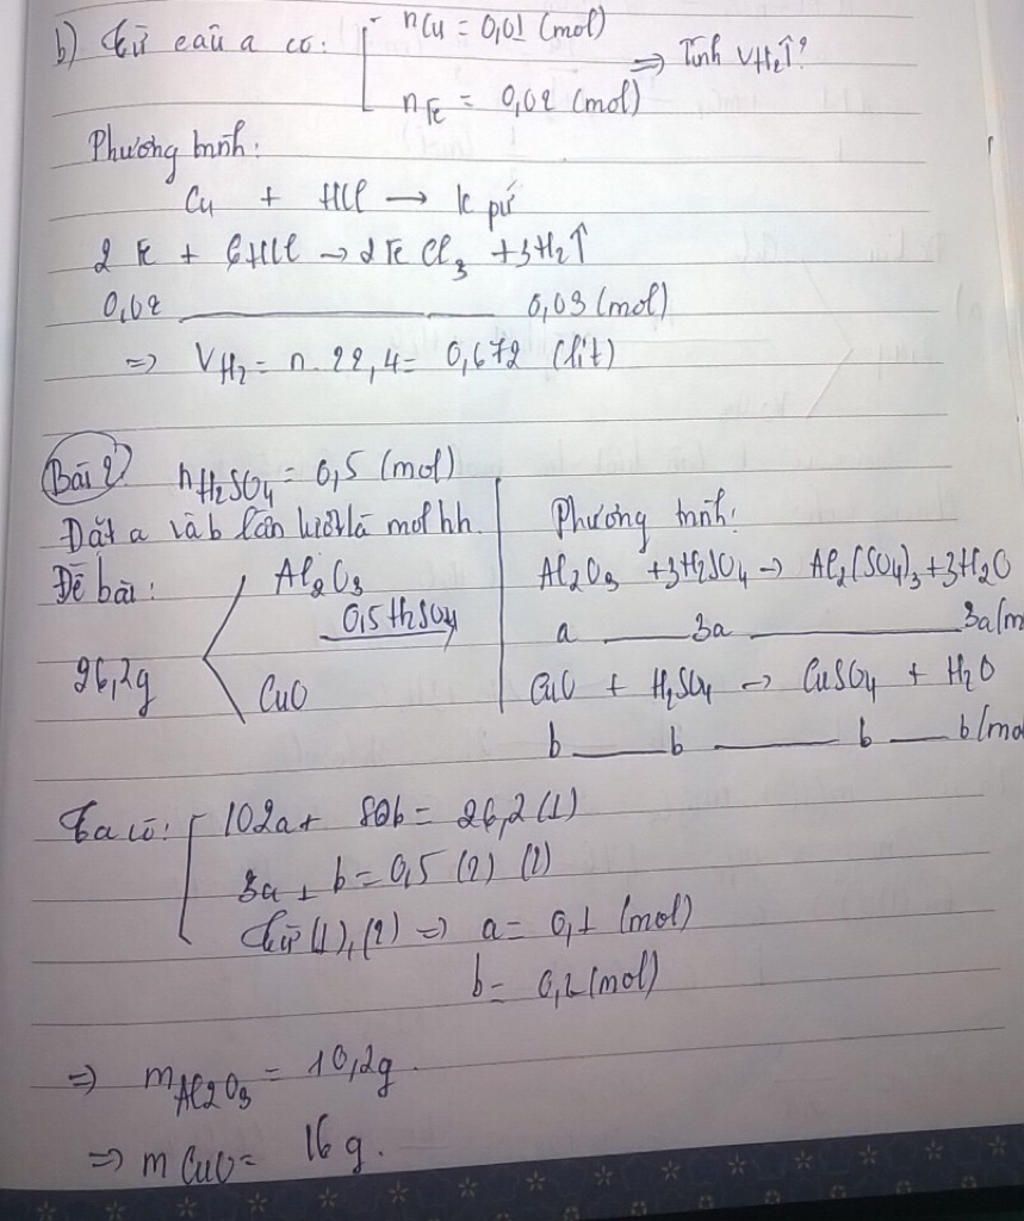 b) Từ câu a có: nCu = 0,01 (mol)
nFe = 0,02 (mol) ⇒ Tính VH₂↑?
Phương trình:
Cu + HCl → k pứ
2Fe + 6HCl → 2FeCl₃ + 3H₂↑
0,02 0,03 (mol)
⇒ VH₂ = n.22,4 = 0,672 (lít)
Bài 2 nH₂SO₄ = 0,5 (mol)
Đặt a và b lần lượt là mol hh.
Đề bài:
26,2g
Al₂O₃
0,5 H₂SO₄
CuO
Phương trình:
Al₂O₃ + 3H₂SO₄ → Al₂(SO₄)₃ + 3H₂O
a 3a 3a (m
CuO + H₂SO₄ → CuSO₄ + H₂O
b b b b (mo
Ta có: 102a + 80b = 26,2 (1)
3a + b = 0,5 (2) (2)
Từ (1), (2) ⇒ a = 0,1 (mol)
b = 0,2 (mol)
⇒ mAl₂O₃ = 10,2g.
⇒ mCuO = 16g.